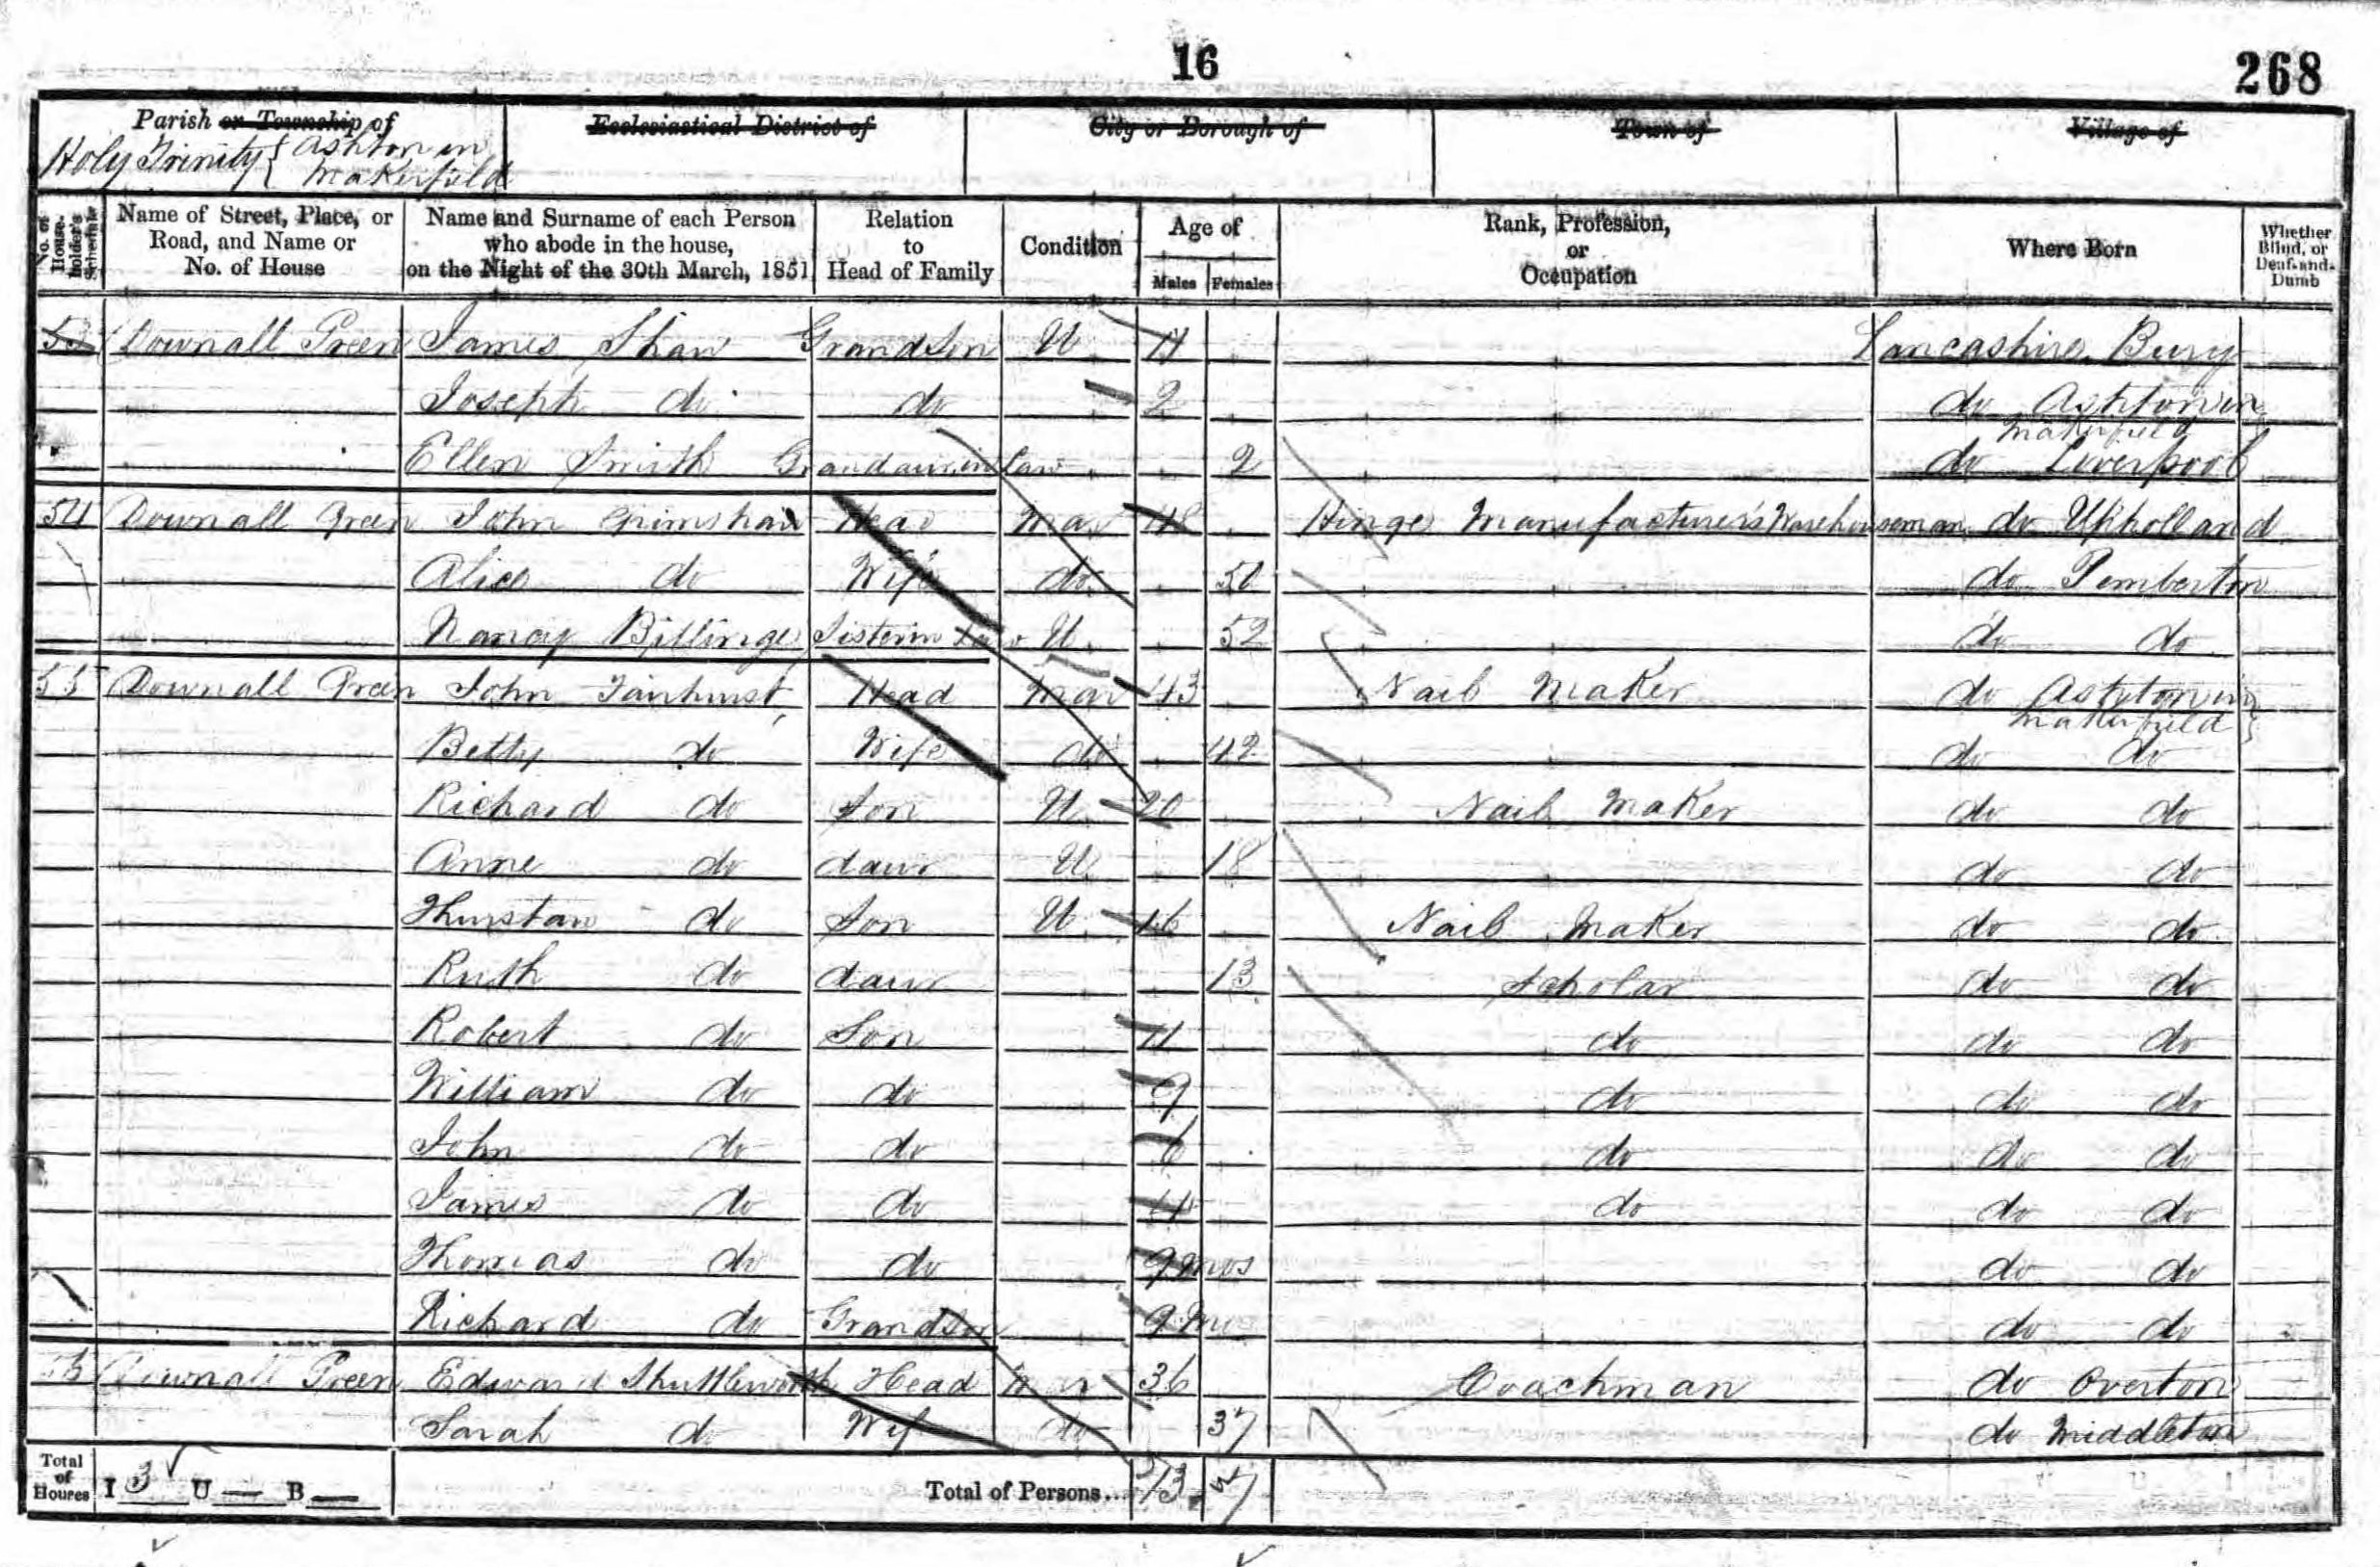 16
268
Parish or Township of
Holy Trinity { Ashton in
Makerfield
Ecclesiastical District of
City or Borough of
Town of
Village of
No. of House-holder's Schedule
Name of Street, Place, or Road, and Name or No. of House
Name and Surname of each Person who abode in the house, on the Night of the 30th March, 1851
Relation to Head of Family
Condition
Age of
Males Females
Rank, Profession, or Occupation
Where Born
Whether Blind, or Deaf-and-Dumb
53 Downall Green James Shaw Grandson U 4 Lancashire Bury
Joseph do do 2 do Ashton in
Makerfield
Ellen Smith Grandaur in law 2 do Liverpool
54 Downall Green John Grimshaw Head Mar 48 Hinge Manufacturer's Warehouseman do Upholland
Alice do Wife do 50 do Pemberton
Nancy Billinge Sister in law U 52 do do
55 Downall Green John Fairhurst Head Mar 43 Nail Maker do Ashton in
Makerfield }
Betty do Wife do 42 do do
Richard do Son U 20 Nail Maker do do
Anne do daur U 18 do do
Thurstan do Son U 16 Nail Maker do do
Ruth do daur 13 Scholar do do
Robert do Son 11 do do do
William do do 9 do do do
John do do 6 do do do
James do do 4 do do do
Thomas do do 9 mos do do
Richard do Grandson 9 mos do do
56 Downall Green Edward Shuttleworth Head Mar 36 Coachman do Overton
Sarah do Wife do 37 do Middleton
Total of Houses I 3 U — B —
Total of Persons... 13 7